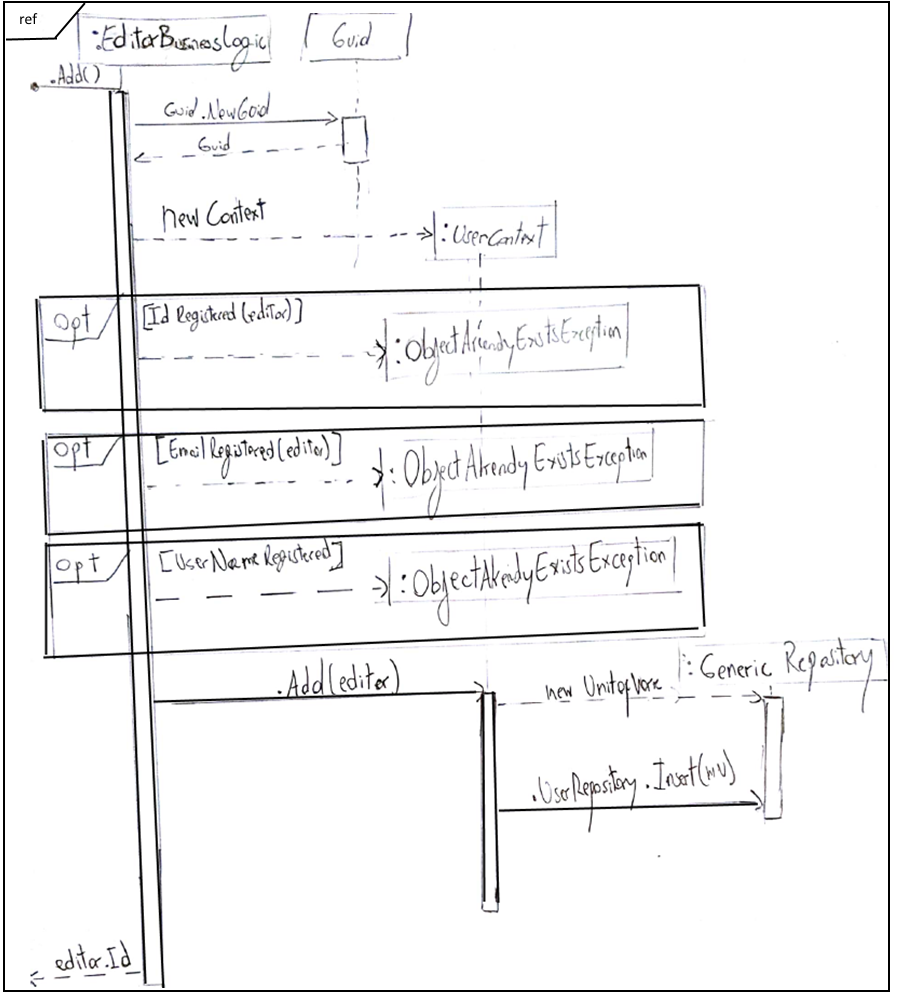 ref
:EditorBusinessLogic
Guid
.Add()
Guid.NewGuid
Guid
new Context
:UserContext
Opt
[Id Registered(editor)]
:ObjectAlreadyExistsException
Opt
[EmailRegistered(editor)]
:ObjectAlreadyExistsException
Opt
[UserName Registered]
:ObjectAlreadyExistsException
:Generic Repository
.Add(editor)
new UnitofWork
.UserRepository.Insert(
editor.Id